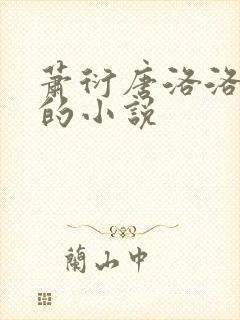 蕭衍唐洛洛
的小說
蘭山中